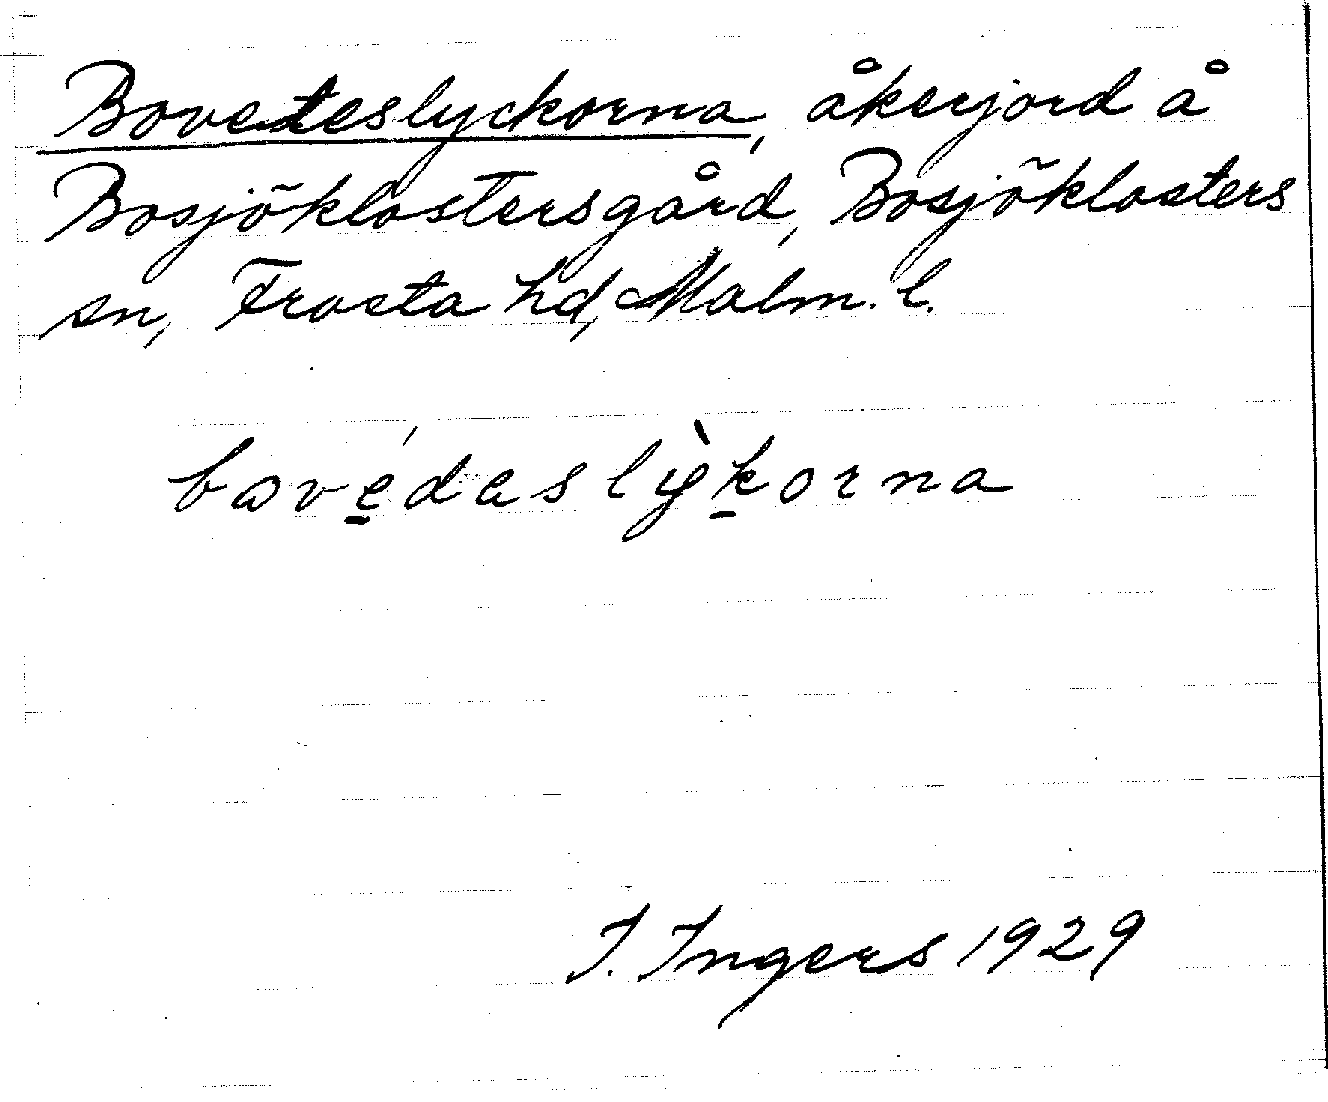 Boveteslyckorna, åkerjord å
Bosjöklostersgård, Bosjöklosters
sn, Frosta hd, Malm. l.
bové̱daslẏ̀ḵorna
I. Ingers 1929